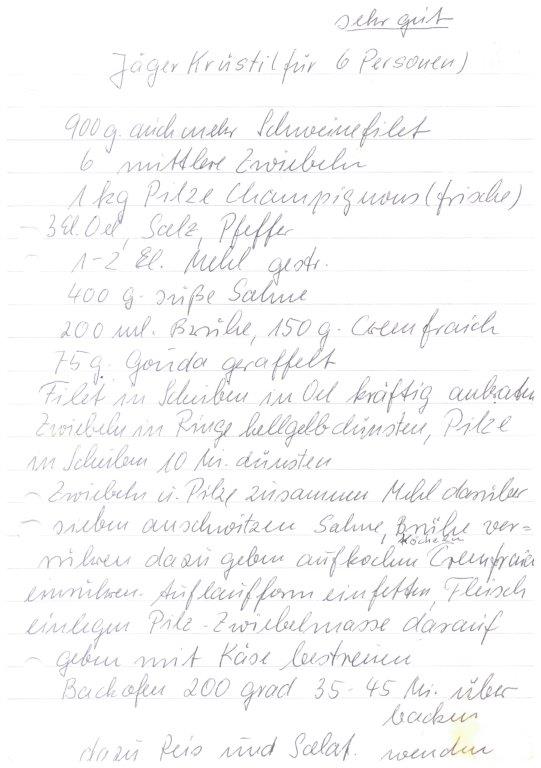 sehr gut
Jäger Krüstil für 6 Personen)
900 g. auch mehr Schweinefilet
6 mittlere Zwiebeln
1 kg Pilze Champignons (frische)
- 3 El. Oel, Salz, Pfeffer
- 1-2 El. Mehl gestr.
400 g. süße Sahne
200 ml. Brühe, 150 g. Cremfraich
75 g. Gouda geraffelt
Filet in Scheiben in Oel kräftig anbraten
Zwiebeln in Ringe hellgelb dünsten, Pilze
in Scheiben 10 Mi. dünsten
- Zwiebeln u. Pilze zusammen Mehl darüber
- sieben anschwitzen Sahne, Brühe ver=
rühren dazu geben aufkochen Cremfraich
einrühren. Auflaufform einfetten, Fleisch
einlegen Pilz-Zwiebelmasse darauf
- geben mit Käse bestreuen
Backofen 200 grad 35-45 Mi. über
backen
dazu Reis und Salat. wenden